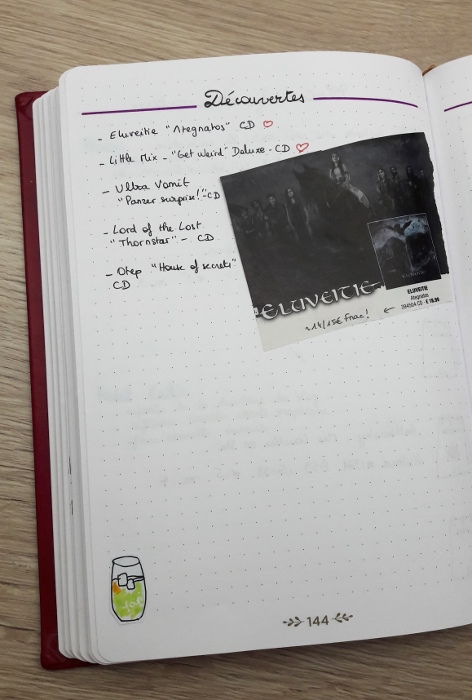 Découvertes
- Eluveitie "Ategnatos" CD ♡
- Little Mix - "Get Weird" Deluxe - CD ♡
- Ultra Vomit
"Panzer surprise!" - CD
- Lord of the Lost
"Thornstar" - CD
- Otep "House of secrets"
CD
ELUVEITIE
ELUVEITIE
Ategnatos
~14/15€ Fnac! ←
144